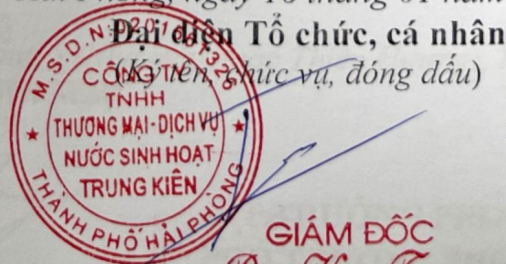 Phòng, ngày 10 tháng 01 năm
Đại diện Tổ chức, cá nhân
(Ký tên, chức vụ, đóng dấu)
M.S.D.N:
CÔNG TY
TNHH
THƯƠNG MẠI-DỊCH VỤ
NƯỚC SINH HOẠT
TRUNG KIÊN
THÀNH PHỐ HẢI PHÒNG
GIÁM ĐỐC